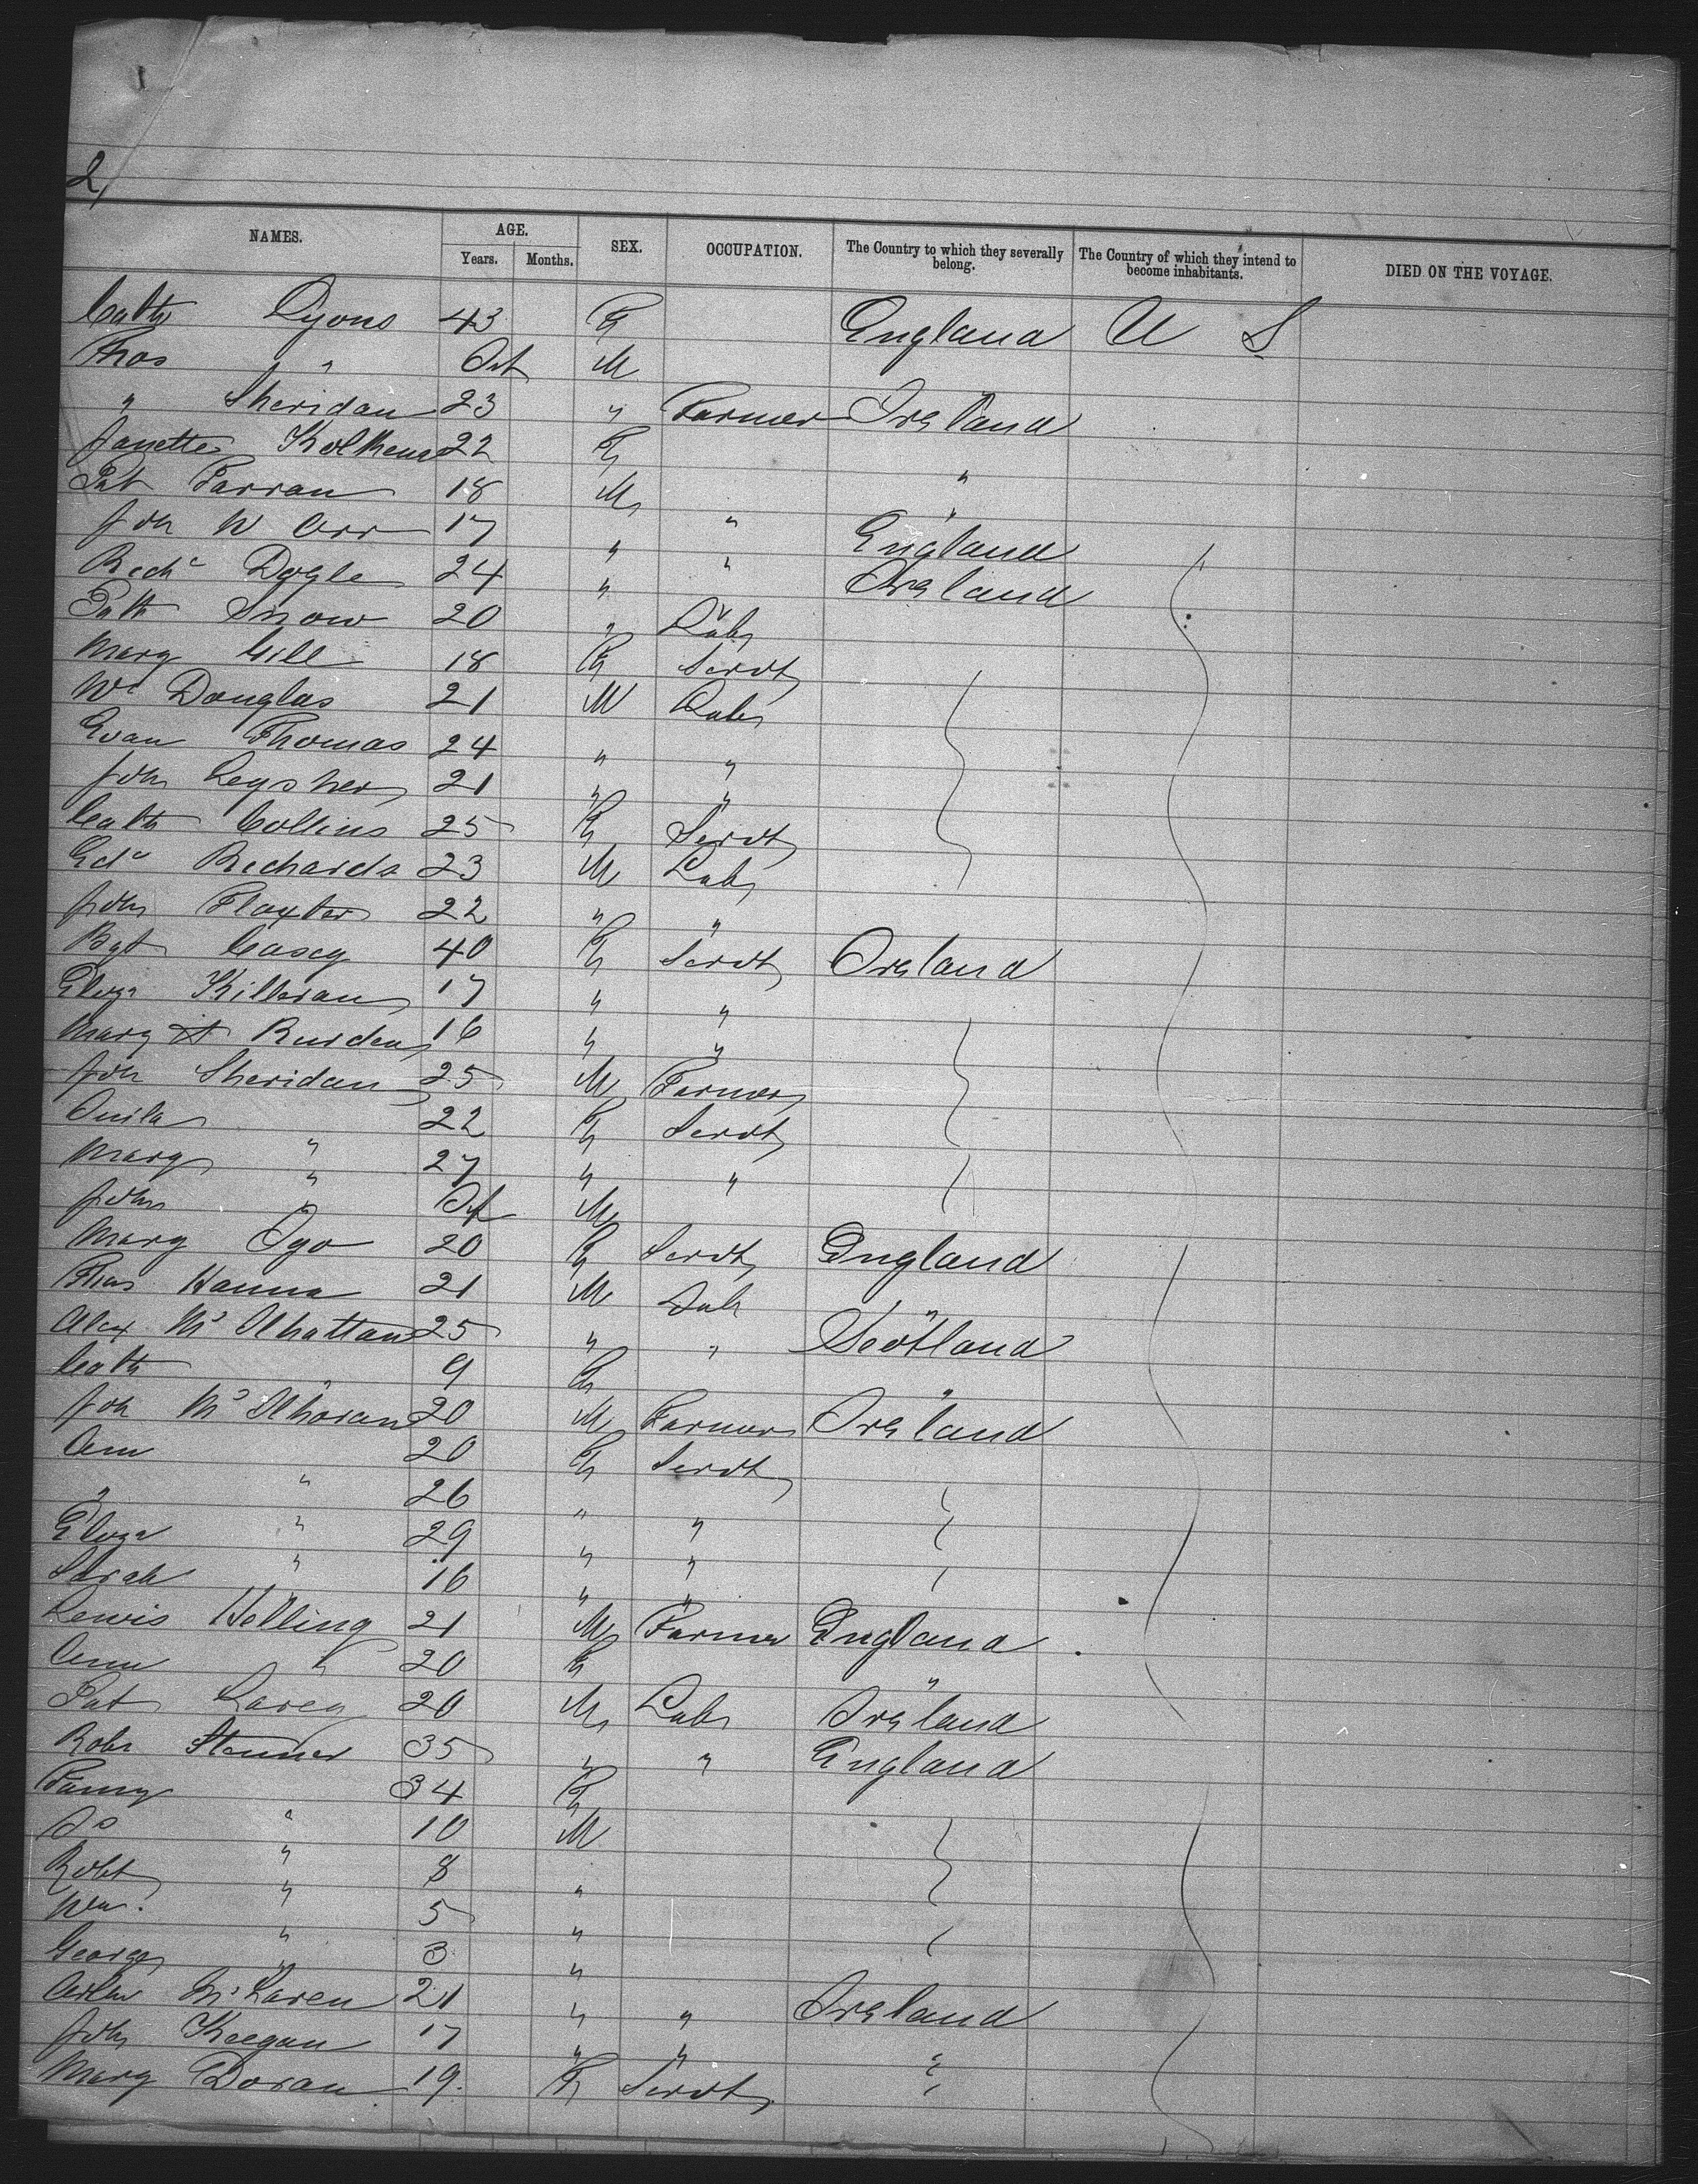 2,
NAMES. AGE. SEX. OCCUPATION. The Country to which they severally belong. The Country of which they intend to become inhabitants. DIED ON THE VOYAGE.
Years. Months.
Cath Lyons 43 F England U S
Thos " Inf M
" Sheridan 23 " Farmer Ireland
Janette 22 F "
Pat Farran 18 M " "
Joh W Orr 17 " " England
Richd Doyle 24 " " Ireland
Patk Snow 20 " Lab
Mary Gill 18 F Servt
Wm Douglas 21 M Lab
Evan Thomas 24 " "
John 21 " "
Cath Collins 25 F Servt
Edd Richards 23 M Lab
John Flaxter 22 " "
Bgt Casey 40 F Servt Ireland
Eliza Killeran 17 " "
Mary A Rurden 16 " "
Joh Sheridan 25 M Farmer
" 22 F Servt
Mary " 27 " "
John " Inf M
Mary Igo 20 F Servt England
Thos Hanna 21 M Lab "
Alex Mc Ilhattan 25 " " Scotland
Cath " 9 F "
Joh Mc Ilhoran 20 M Farmer Ireland
Ann " 20 F Servt
" " 26 " "
Eliza " 29 " "
Sarah " 16 " "
Lewis Helling 21 M Farmer England
Ann " 20 F "
Pat Carey 20 M Lab Ireland
Robt Stenner 35 " " England
Fanny " 34 F
Jo " 10 M
Robt " 8 "
Wm. " 5 "
George " 3 "
Arthr McLaren 21 " " Ireland
John Keegan 17 " " "
Mary Doran 19 F Servt "